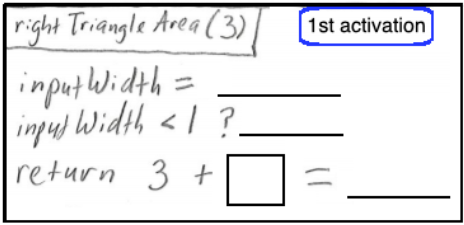 right Triangle Area (3)
1st activation
inputWidth =
inputWidth < 1 ?
return 3 + =